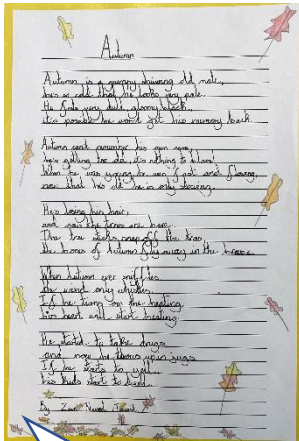 Autumn
Autumn is a grumpy shivering old male,
he's so cold that he looks very pale.
He feels very dull, gloomy black,
it's possible he won't get his memory back.
Autumn can't remember his own name,
he's getting too old, it's nothing to blame!
When he was young he was fast and flowing,
now that he's old he is only slowing.
He's losing his hair,
and now the trees are bare.
The tree sticks snap off the tree,
the bones of Autumn fly away in the breeze.
When Autumn ever sniffles
the wind only whistles.
If he turns on the heating,
his heart will start beating.
He started to take drugs
and now he throws up in jugs.
If he starts to yell,
his kids start to
By